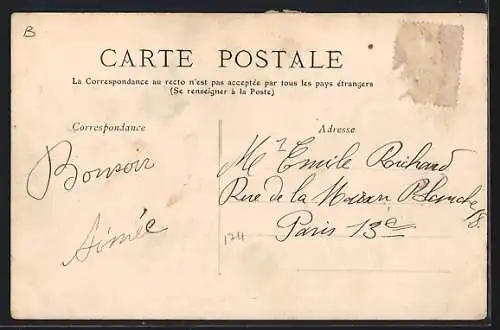 B
CARTE POSTALE
La Correspondance au recto n'est pas acceptée par tous les pays étrangers
(Se renseigner à la Poste)
Correspondance
Bonsoir
Aimée
Adresse
Mr Emile Richard
Rue de la Maison Blanche 18
Paris 13e